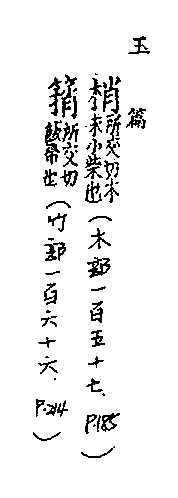 玉篇
梢所交切木
末小柴也
(木部一百五十七. P.185)
䈰所交切
飯帚也
(竹部一百六十六. P.214)